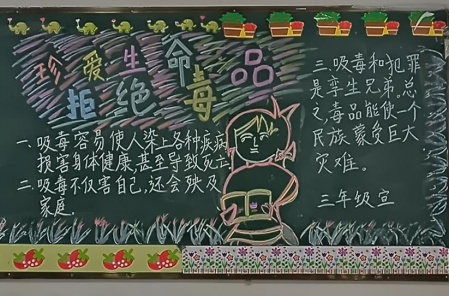 珍爱生命
拒绝毒品
一、吸毒容易使人染上各种疾病
损害身体健康,甚至导致死亡
二、吸毒不仅害自己,还会殃及
家庭.
三.吸毒和犯罪
是孪生兄弟,总
之毒品能使一个
民族蒙受巨大
灾难。
三年级宣